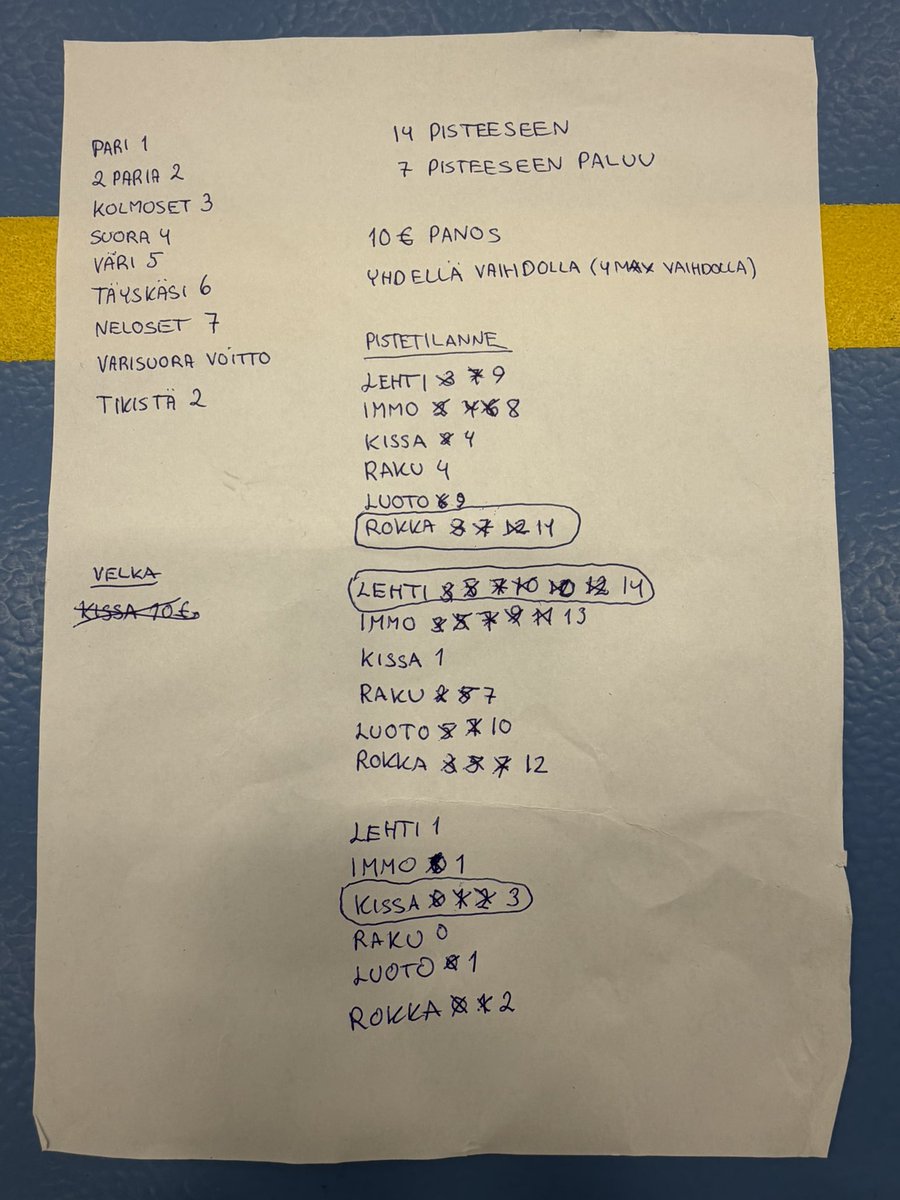 PARI 1
2 PARIA 2
KOLMOSET 3
SUORA 4
VÄRI 5
TÄYSKÄSI 6
NELOSET 7
VARISUORA VOITTO
TIKISTÄ 2
14 PISTEESEEN
7 PISTEESEEN PALUU
10 € PANOS
YHDELLÄ VAIHDOLLA (4 MAX VAIHDOLLA)
PISTETILANNE
LEHTI 3 7 9
IMMO 8
KISSA 4
RAKU 4
LUOTO 9
ROKKA 3 7 12 14
VELKA
KISSA 10 €
LEHTI 3 5 7 10 10 12 14
IMMO 3 5 7 9 11 13
KISSA 1
RAKU 2 5 7
LUOTO 5 7 10
ROKKA 3 5 7 12
LEHTI 1
IMMO 1
KISSA 0 1 2 3
RAKU 0
LUOTO 0 1
ROKKA 0 1 2